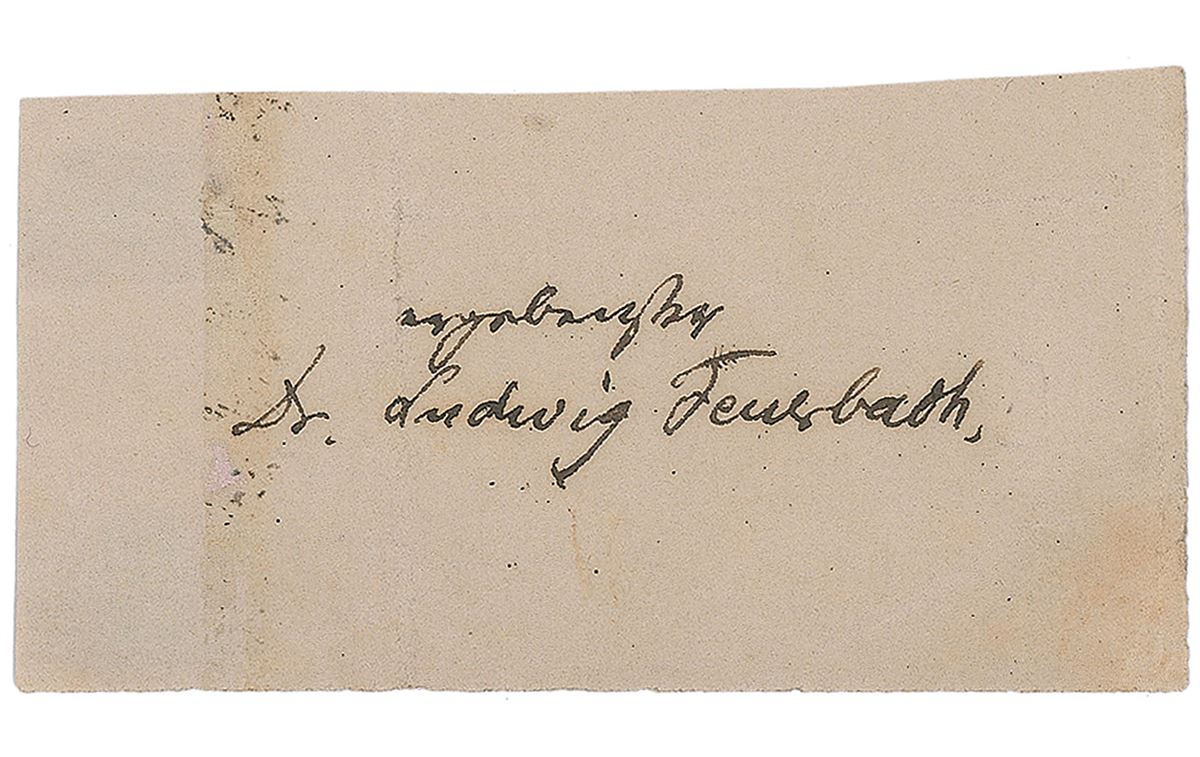 ergebenster
Dr. Ludwig Feuerbach,